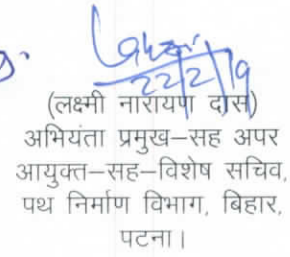 22/2/19
(लक्ष्मी नारायण दास)
अभियंता प्रमुख–सह अपर
आयुक्त–सह–विशेष सचिव,
पथ निर्माण विभाग, बिहार,
पटना।